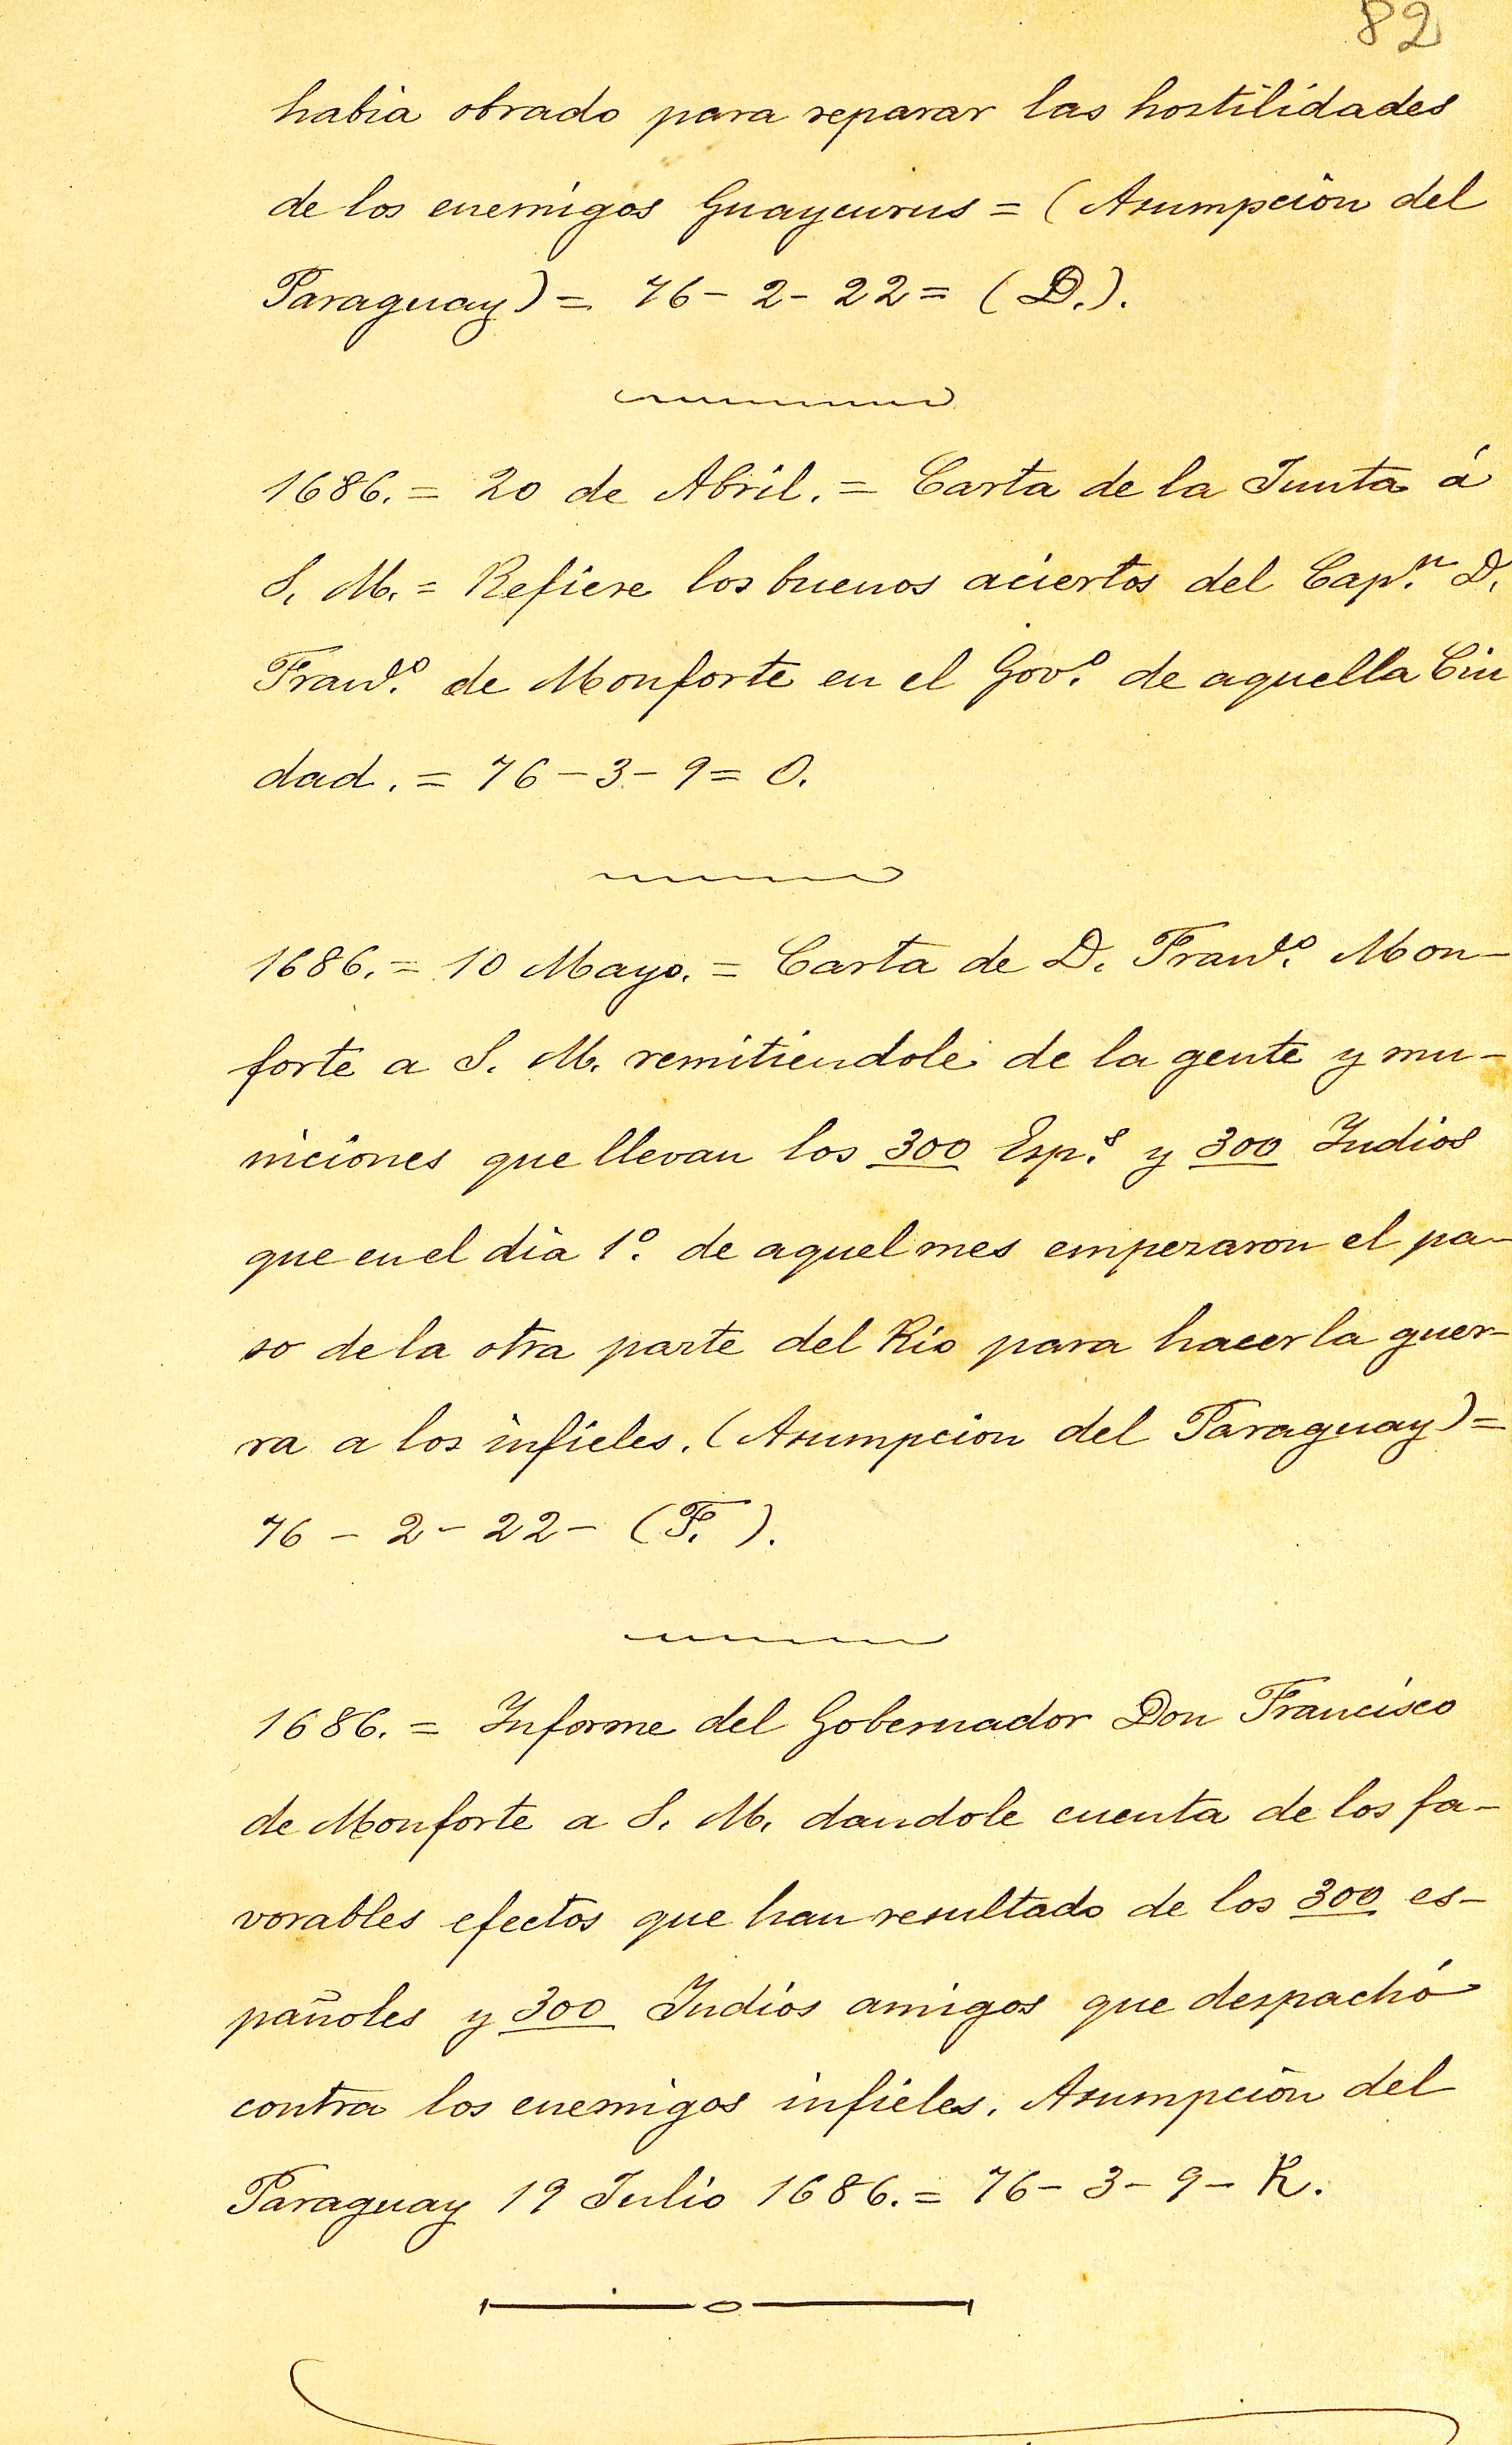 82
habia obrado para reparar las hostilidades
de los enemigos Guaycurus = (Asumpción del
Paraguay) = 76 - 2 - 22 = (D.).
1686. = 20 de Abril. = Carta de la Junta á
S. M. = Refiere los buenos aciertos del Cap.n D.
Franc.o de Monforte en el Gov.o de aquella Ciu
dad. = 76 - 3 - 9 = O.
1686. = 10 Mayo. = Carta de D. Franc.o Mon-
forte a S. M. remitiendole de la gente y mu-
niciones que llevan los 300 Esp.s y 300 Indios
que en el dia 1º. de aquel mes empezaron el pa-
so de la otra parte del Rio para hacer la guer-
ra a los infieles. (Asumpcion del Paraguay) =
76 - 2 - 22 - (F.).
1686. = Informe del Gobernador Don Francisco
de Monforte a S. M. dandole cuenta de los fa-
vorables efectos que han resultado de los 300 es-
pañoles y 300 Indios amigos que despachó
contra los enemigos infieles. Asumpción del
Paraguay 19 Julio 1686. = 76 - 3 - 9 - K.